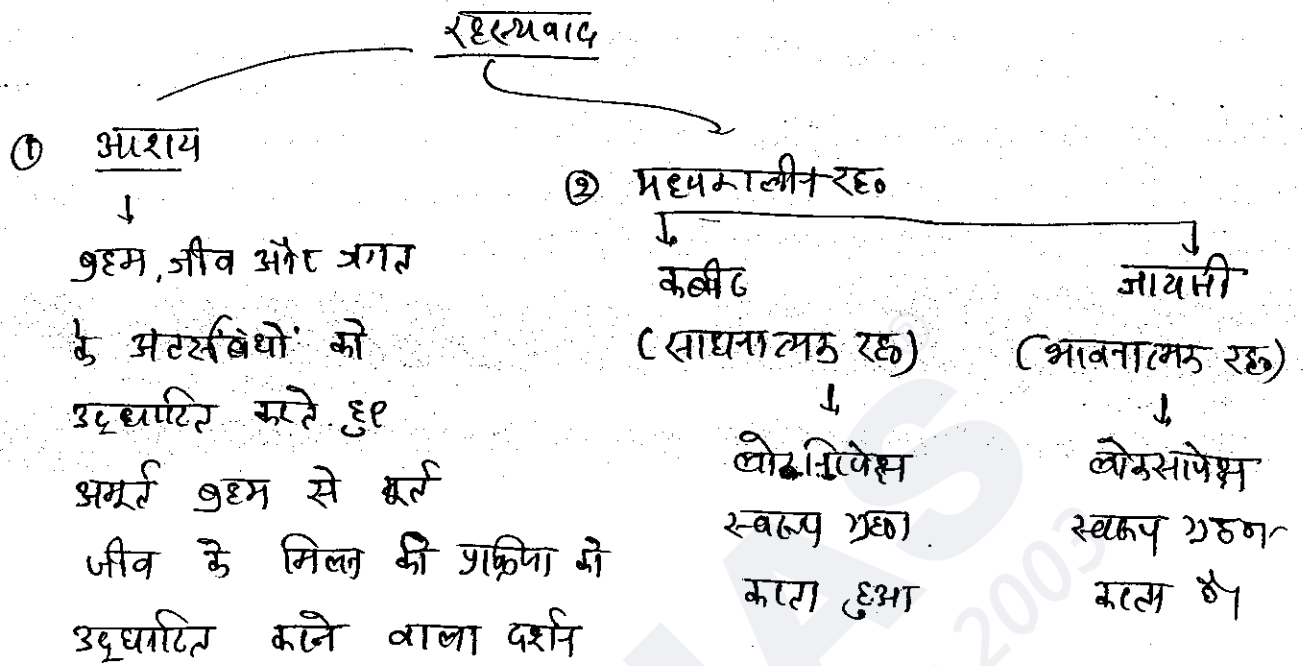 रहस्यवाद
① आशय
ब्रह्म, जीव और जगत
के अंतर्संबंधों को
उद्घाटित करते हुए
अमूर्त ब्रह्म से मूर्त
जीव के मिलन की प्रक्रिया को
उद्घाटित करने वाला दर्शन
② मध्यकालीन रह०
कबीर
(साधनात्मक रह०)
लोकनिरपेक्ष
स्वरूप ग्रहण
करता हुआ
जायसी
(भावनात्मक रह०)
लोकसापेक्ष
स्वरूप ग्रहण
करता है।
IAS
2003